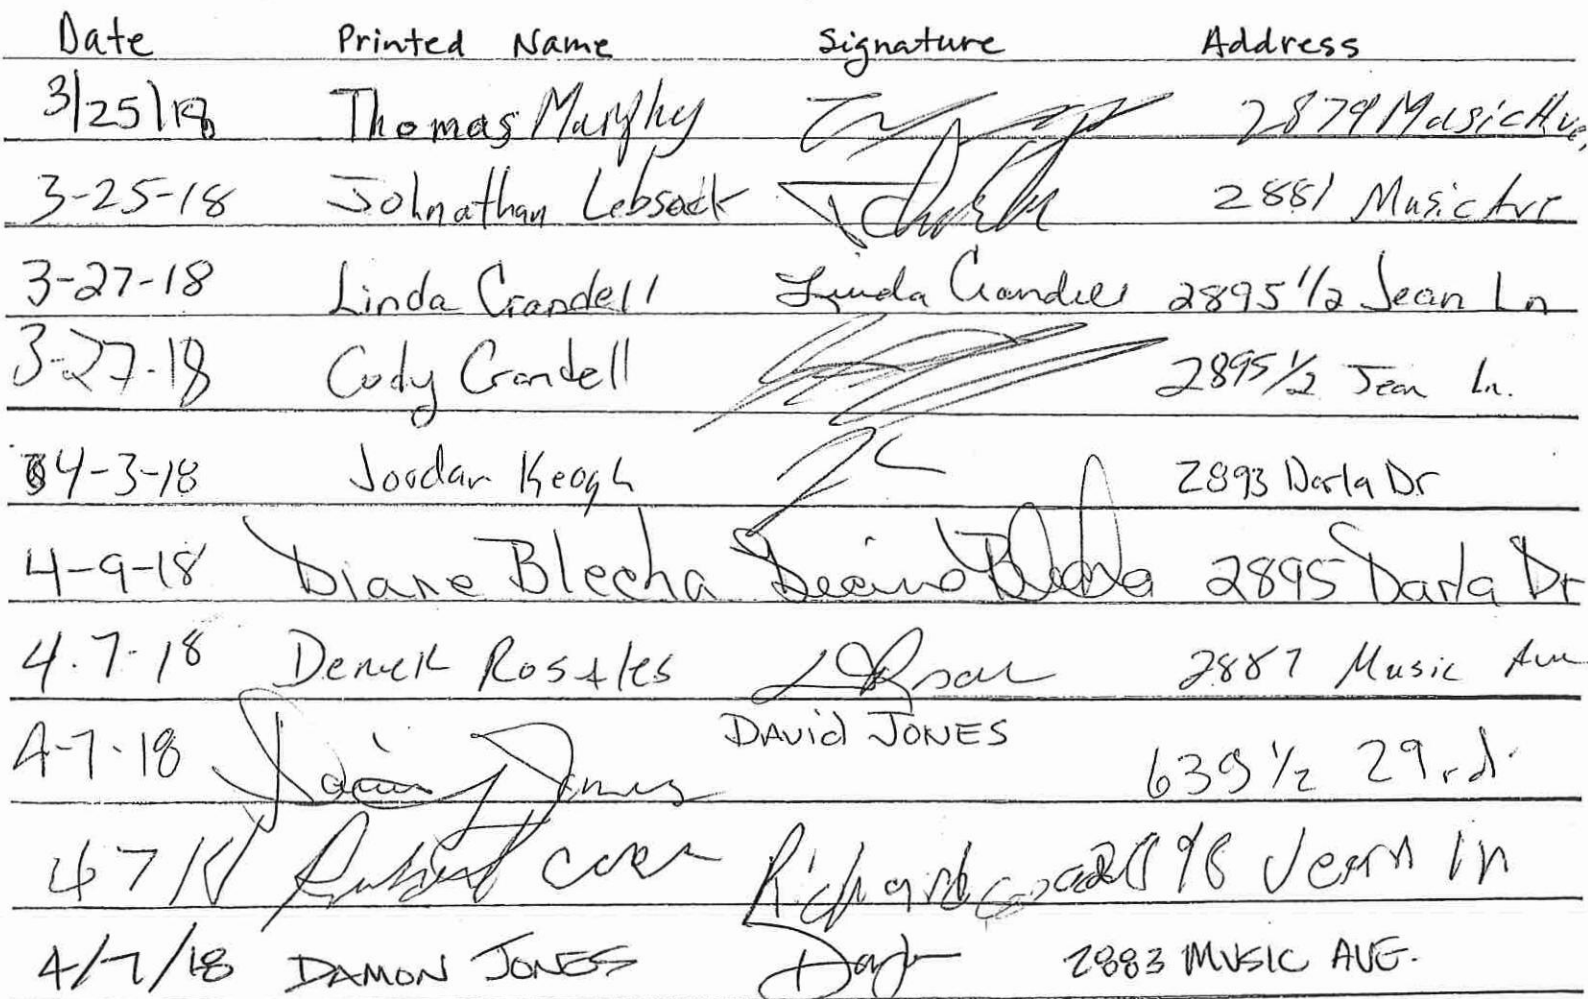 Date Printed Name Signature Address
3/25/18 Thomas Murphy 2879 Music Ave,
3-25-18 Johnathan Lebsack 2881 Music Ave
3-27-18 Linda Crandell Linda Crandell 2895 1/2 Jean Ln
3-27-18 Cody Crandell 2895 1/2 Jean Ln.
4-3-18 Jordan Keogh 2893 Darla Dr
4-9-18 Diane Blecha Diane Blecha 2895 Darla Dr
4.7-18 Derrek Rosales 2887 Music Ave
4-7-18 David Jones DAVid JONES 639 1/2 29 rd.
4 7 18 Richard Richard 2898 Jean ln
4/7/18 DAMON JONES 2883 MUSIC AVE.